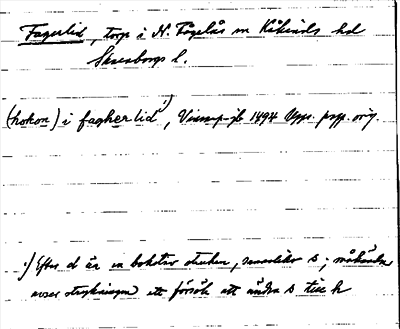 Fagerlid, torp i N. Fågelås sn Kåkinds hd
Skaraborgs l.
(hokon) i fagherlid 1), Vinsarp-jb 1494 Upps. prp. orig.
1) Efter d är en bokstav struken, sannolikt s; måhända
avser strykningen ett försök att ändra s till h